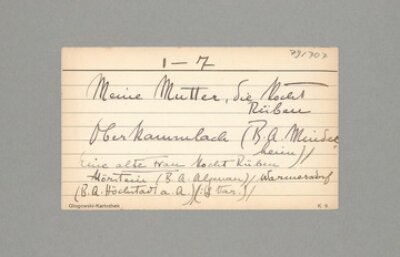 791707
1 – 7
Meine Mutter, die kocht
Rüben
Oberkammlach (B.A. Mindel
heim)/
Eine alte Frau kocht Rüben
Mörnstein (B.A. Alzenau)/ Warmersdorf
(B.A. Höchstadt a. A.)(: Var.)/
Glogowski-Karto­thek
K 5